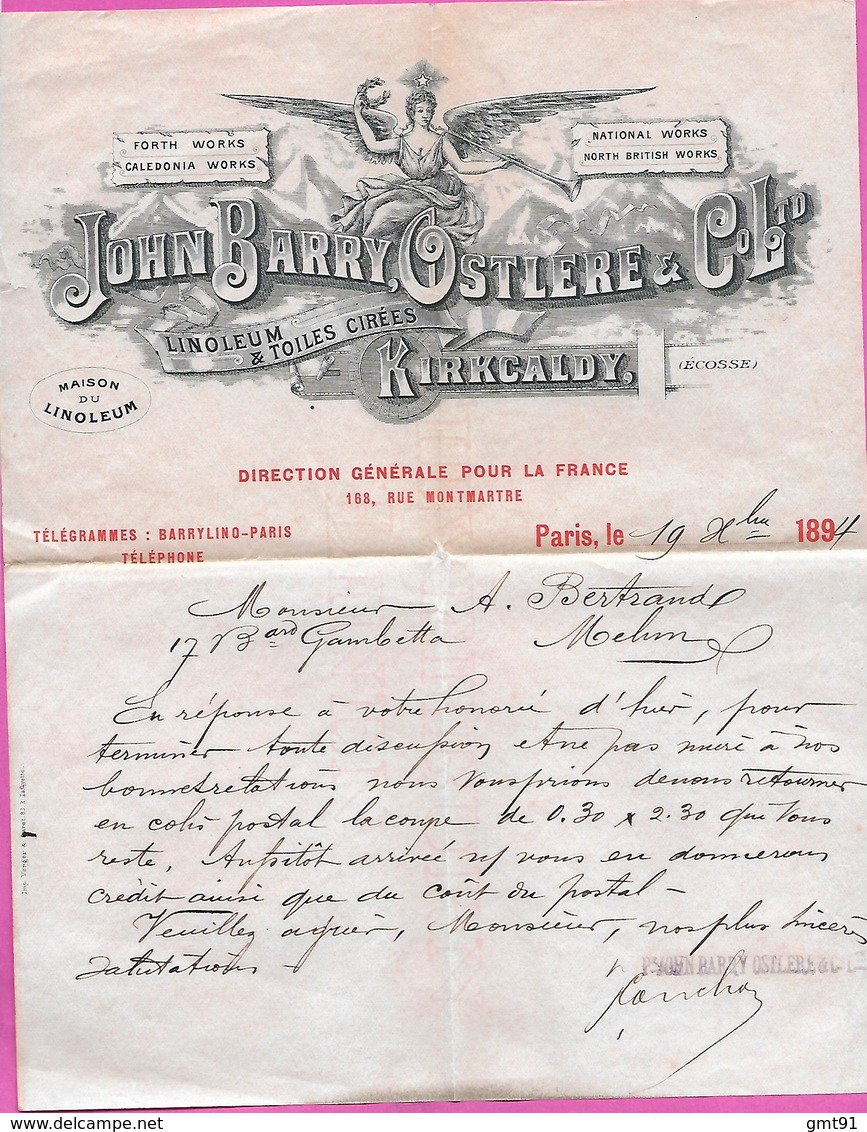 FORTH WORKS
CALEDONIA WORKS
NATIONAL WORKS
NORTH BRITISH WORKS
JOHN BARRY, OSTLERE & Co LTD
LINOLEUM & TOILES CIRÉES
KIRKCALDY, (ÉCOSSE)
MAISON DU LINOLEUM
DIRECTION GÉNÉRALE POUR LA FRANCE
168, RUE MONTMARTRE
TÉLÉGRAMMES : BARRYLINO-PARIS
TÉLÉPHONE
Paris, le 19 Xbre 1894
Monsieur A. Bertrand
17 Bard Gambetta Melun
En réponse à votre honorée d'hier, pour
terminer toute discussion et ne pas nuire à nos
bonnes relations nous vous prions de nous retourner
en colis postal la coupe de 0.30 x 2.30 que vous
reste. Aussitôt arrivée ns vous en donnerons
crédit ainsi que du coût du postal -
Veuillez agréer, Monsieur, nos plus sincères
salutations
P. JOHN BARRY OSTLERE & Co
gmt91